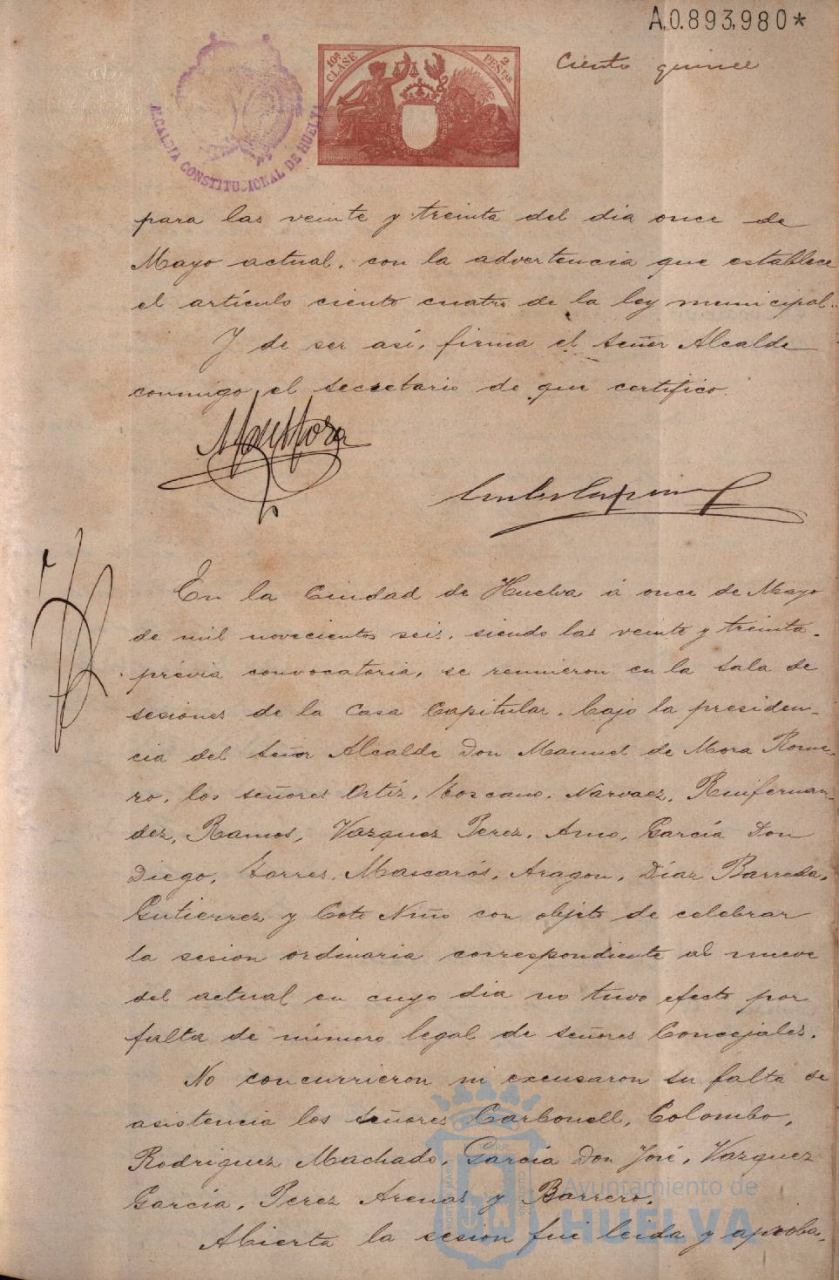 A.0.893,980*
Ciento quince
10ª CLASE
2 PESETAS
ALCALDIA CONSTITUCIONAL DE HUELVA
para las veinte y treinta del dia once de
Mayo actual, con la advertencia que establece
el artículo ciento cuatro de la ley municipal.
Y de ser así, firma el Señor Alcalde
conmigo el secretario de que certifico.
En la Ciudad de Huelva á once de Mayo
de mil novecientos seis, siendo las veinte y treinta
prévia convocatoria, se reunieron en la Sala de
sesiones de la Casa Capitular, bajo la presiden-
cia del Señor Alcalde Don Manuel de Mora Rome-
ro, los señores Ortíz, Toscano, Narvaez, Ruifernan-
dez, Ramos, Vazquez Perez, Amo, García Don
Diego, Torres, Mascarós, Aragon, Díaz Barreda,
Gutierrez y Coto Niño con objeto de celebrar
la sesion ordinaria correspondiente al nueve
del actual en cuyo dia no tuvo efecto por
falta de número legal de señores Concejales.
No concurrieron ni excusaron su falta de
asistencia los señores Carbonell, Colombo,
Rodriguez Machado, García Don José, Vazquez
García, Perez Arenas y Barrero.
Abierta la sesion fue leida y aproba-
Ayuntamiento de
HUELVA